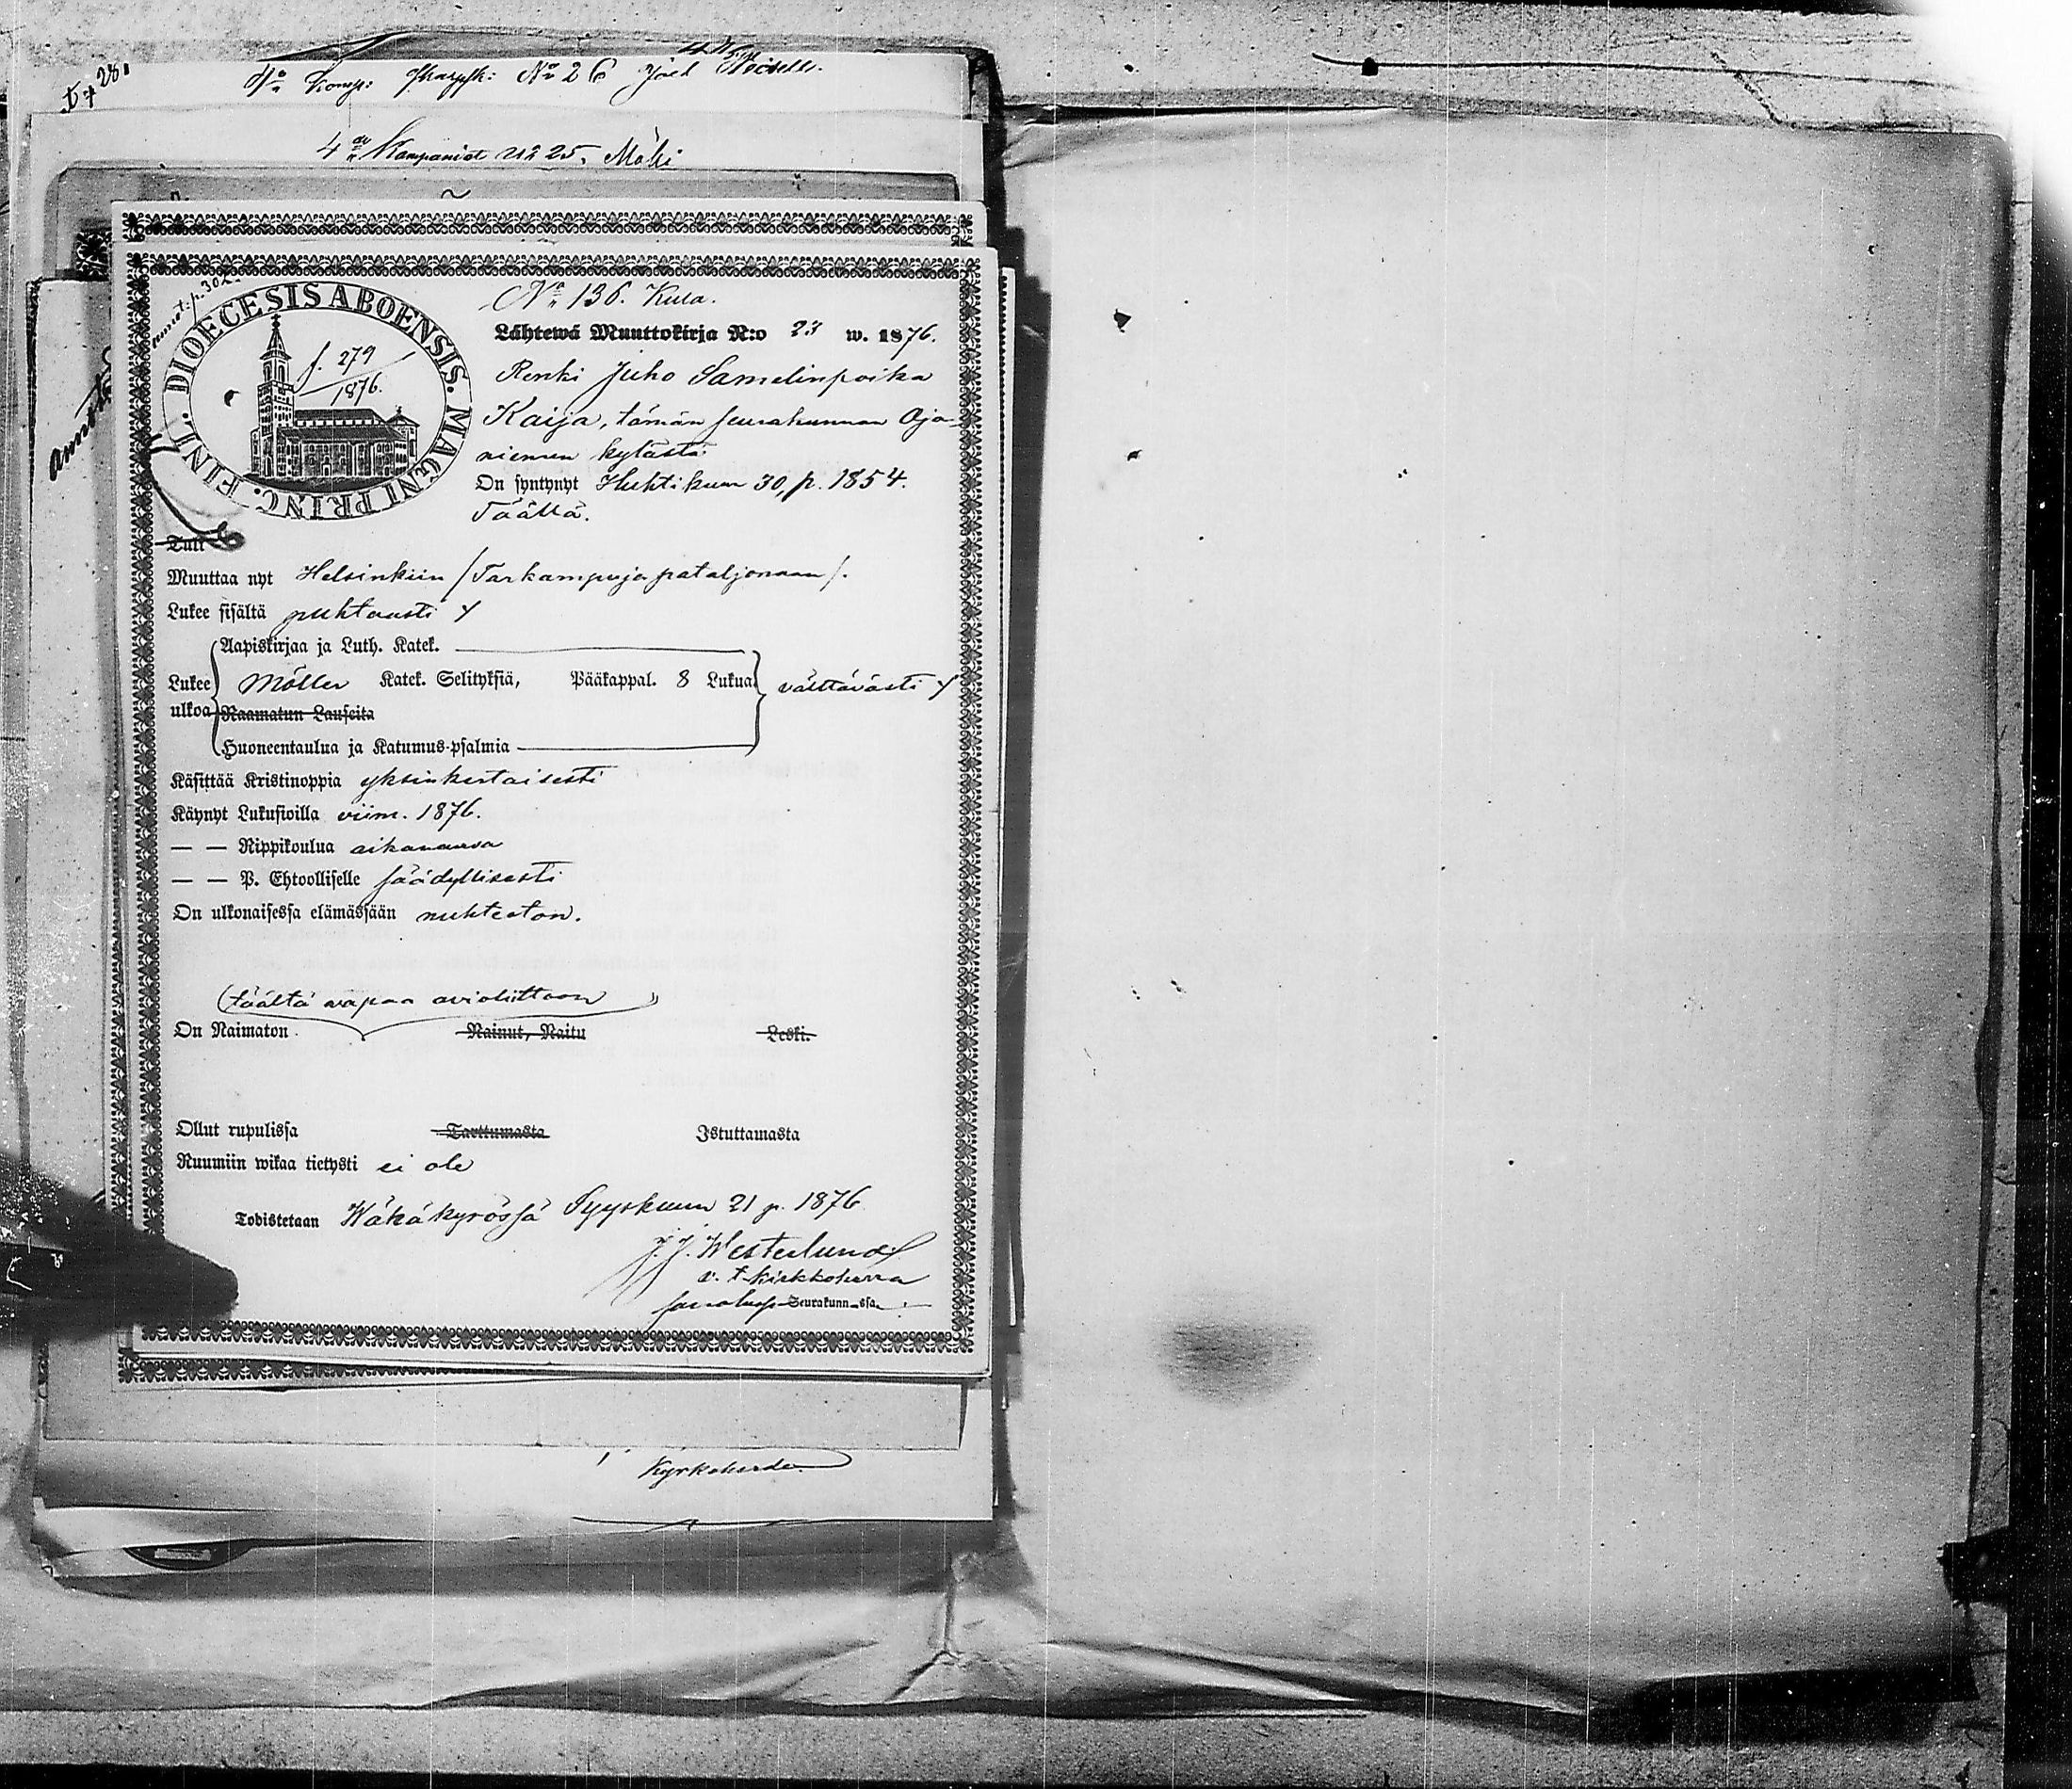 No 26 Joel
4de Kompaniet No 25. Mäki
DIOECESIS ABOENSIS. MAGNI PRINC. FINL.
f. 279
1876.
No 136. Kula.
Lähtewä Muuttokirja N:o 23 w. 1876.
Renki Juho Samelinpoika
Kaija, tämän seurakunnan Oja-
niemen kylästä
On syntynyt Huhtikuun 30, p. 1854.
Täällä.
Tuli
Muuttaa nyt Helsinkiin /Tarkampujapataljonaan/.
Lukee sisältä puhtaasti
Aapiskirjaa ja Luth. Katek.
Lukee Möller Katek. Selityksiä, Pääkappal. 8 Lukua välttävästi
ulkoa Raamatun Lauseita
Huoneentaulua ja Katumus-psalmia
Käsittää Kristinoppia yksinkertaisesti
Käynyt Lukusioilla viim. 1876.
— — Rippikoulua aikanansa
— — P. Ehtoolliselle säädyllisesti
On ulkonaisessa elämässään nuhteeton.
(täältä vapaa avioliittoon)
On Naimaton Nainut, Naitu Leski.
Ollut rupulissa Tarttumasta Istuttamasta
Ruumiin wikaa tietysti ei ole
Todistetaan Wähäkyrössä Syyskuun 21 p. 1876
J. J. Westerlund
v. t. kirkkoherra
Seurakunn-ssa.
Kyrkoherde